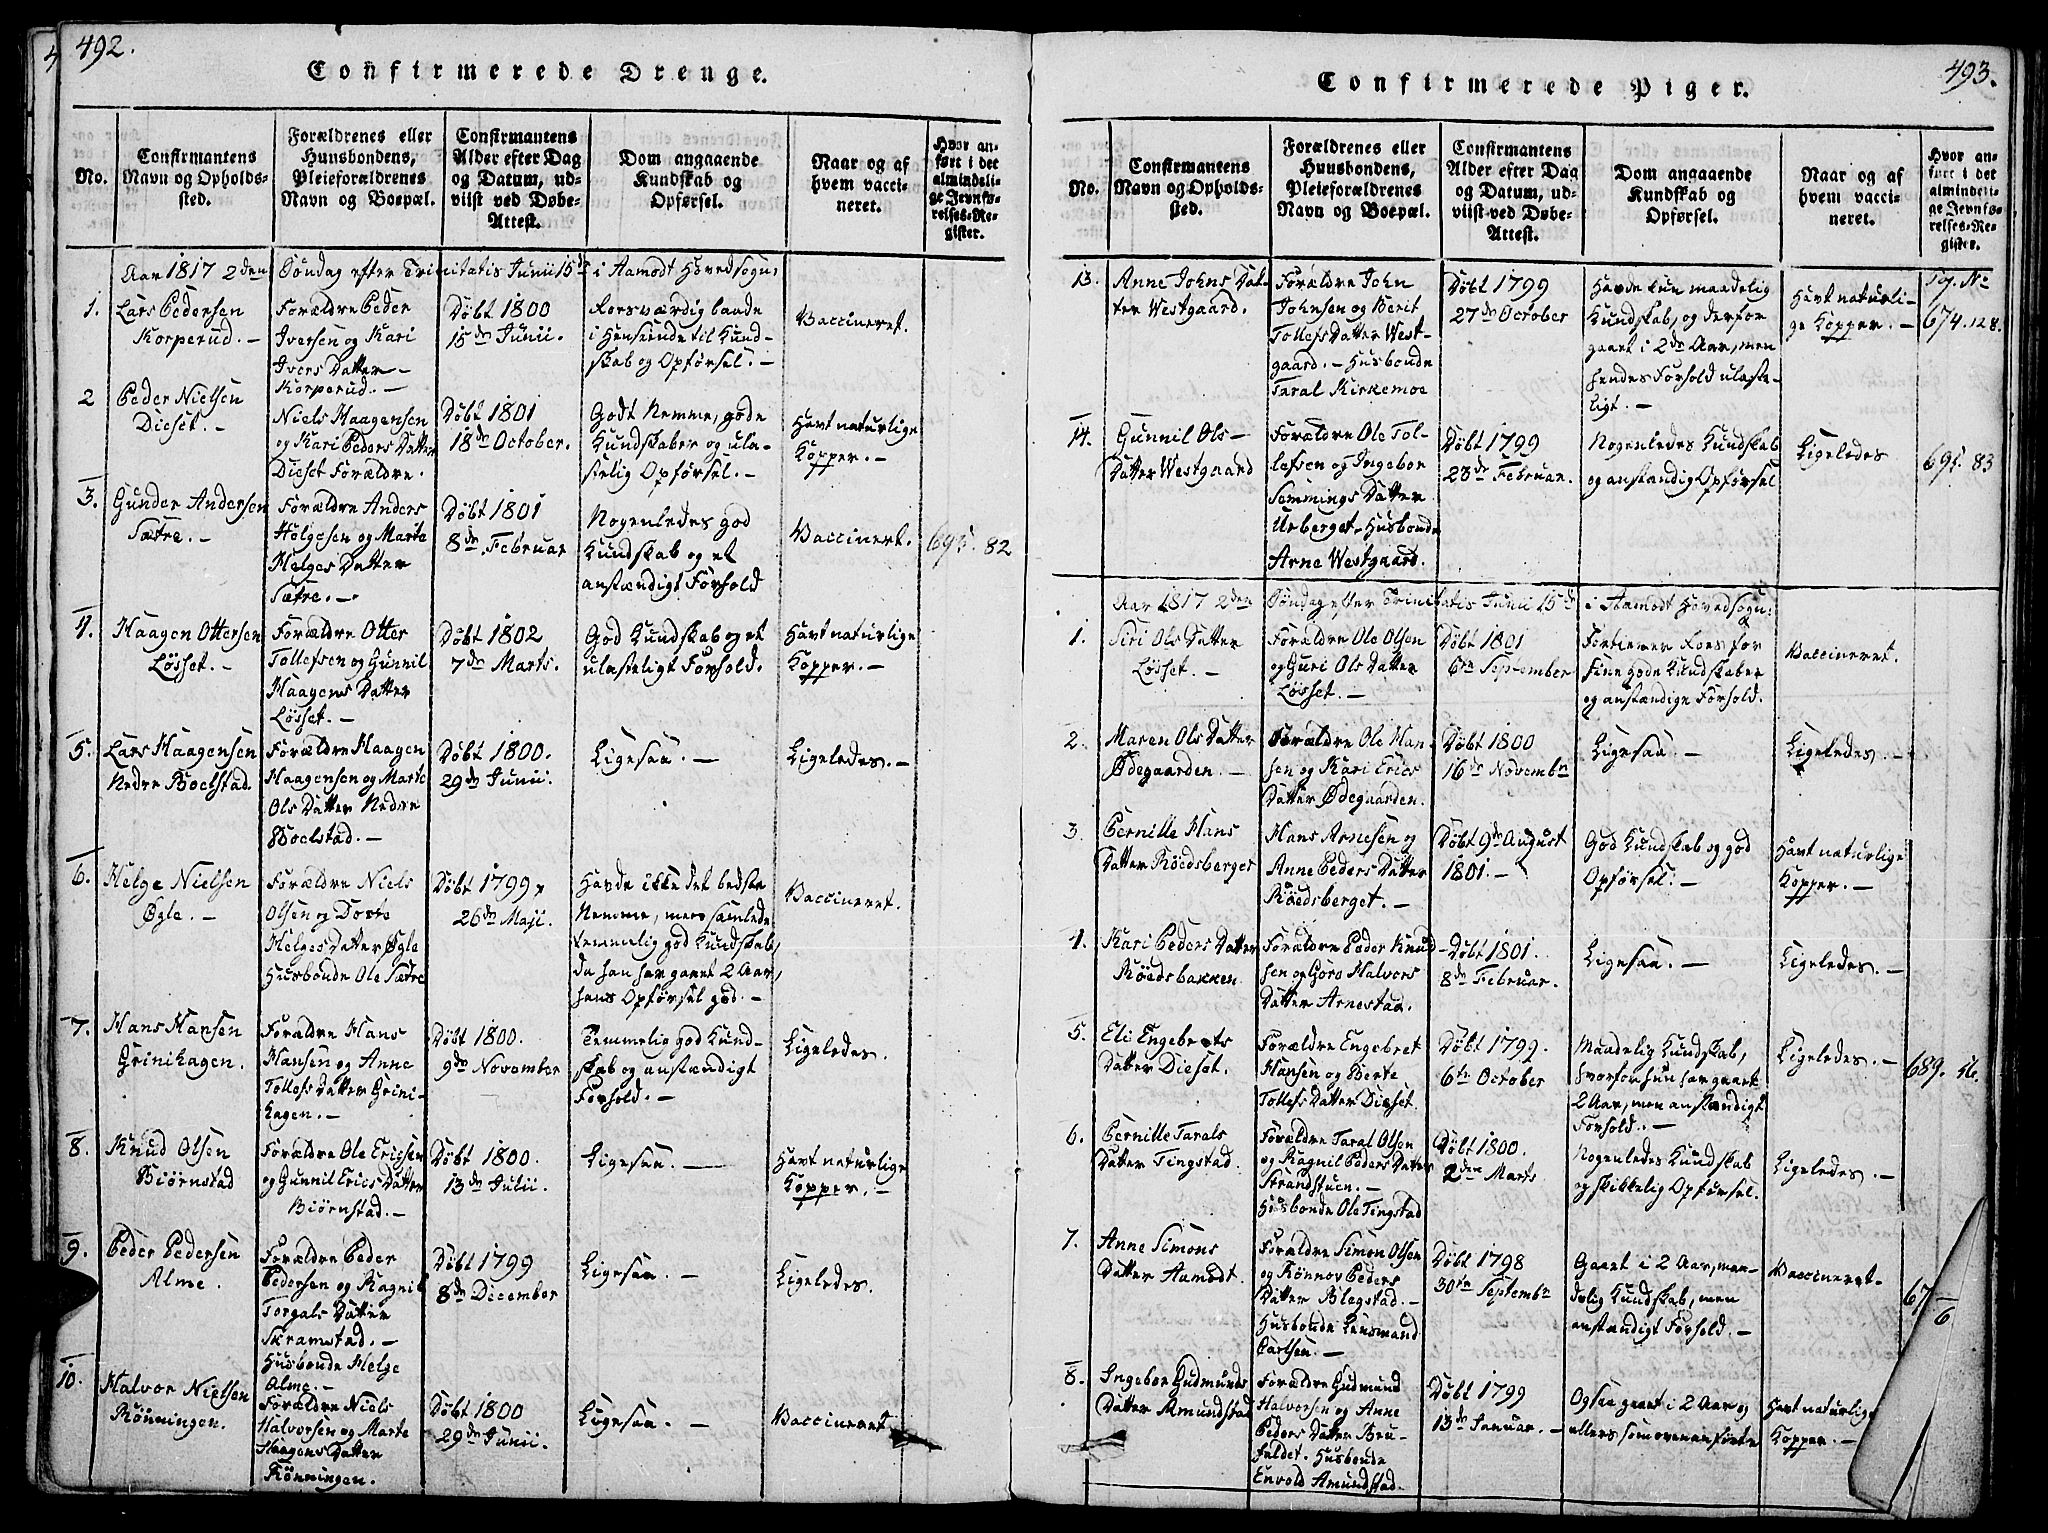 492.
Confirmerede Drenge.
No.
Confirmantens Navn og Opholds-sted.
Forældrenes eller Huusbondens, Pleieforældrenes Navn og Boepæl.
Confirmantens Alder efter Dag og Datum, ud-viist ved Døbe-Attest.
Dom angaaende Kundskab og Opførsel.
Naar og af hvem vacci-neret.
Hvor an-ført i det almindeli-ge Jevnfø-relses-Re-gister.
Aar 1817 2den Søndag efter Trinitatis Junii 15de i Aamodt Hovedsogn:
1.
Lars Pedersen
Korperud. -
Forældre Peder
Iversen og Kari
Ivers Datter -
Korperud. -
Døbt 1800
15de Junii.
Roesværdig baade
i Henseende til Kund-
skab og Opførsel. -
Vaccineret.
2
Peder Nielsen
Dieset. -
Niels Haagensen
og Kari Peders Datter
Dieset Forældre.
Døbt 1801
18de October.
Godt Nemme, gode
Kundskaber og ula-
stelig Opførsel. -
Havt naturlige
Kopper. -
3.
Gunder Andersen
Sætre. -
Forældre Anders
Helgesen og Marte
Helges Datter
Sætre. -
Døbt 1801
8de Februar
Nogenledes god
Kundskab og et
anstændigt Forhold
Vaccinert.
695. 82
4.
Haagen Ottersen
Løsset. -
Forældre Otter
Tollefsen og Gunnil
Haagens Datter
Løsset. -
Døbt 1802
7de Marts.
God Kundskab og et
ulasteligt Forhold.
Havt naturlige
Kopper. -
5.
Lars Haagensen
Nedre Boelstad.
Forældre Haagen
Haagensen og Marte
Ols Datter Nedre
Boelstad. -
Døbt 1800.
29de Junii.
Ligesaa. -
Ligeledes. -
6.
Helge Nielsen
Øgle. -
Forældre Niels
Olsen og Dorte
Helges Datter Øgle
Husbonde Ole Sætre
Døbt 1799,
26de Maji.
Havde ikke det bedste
Nemme, men samlede
temmelig god Kundskab,
da han har gaaet 2 Aar,
hans Opførsel god. -
Vaccineret.
7.
Hans Hansen
Grinihagen.
Forældre Hans
Hansen og Anne
Tollefs Datter Grini-
hagen. -
Døbt 1800.
9de November
Temmelig god Kund-
skab og anstændigt
Forhold. -
Ligeledes.
8.
Knud Olsen
Biørnstad
Forældre Ole Ericsen
og Gunnil Erics Datter
Biørnstad. -
Døbt 1800.
13de Julii.
Ligesaa. -
Havt naturlige
Kopper. -
9.
Peder Pedersen
Alme.
Forældre Peder
Pedersen og Ragnil
Torgals Datter
Skramstad. -
Husbonde Helge
Alme. -
Døbt 1799
8de December
Ligesaa. -
Ligeledes.
10.
Halvor Nielsen
Rønningen.
Forældre Niels
Halvorsen og Marte
Haagens Datter
Rønningen.
Døbt 1800
29de Junii.
Ligesaa. -
Vaccineret
493.
Confirmerede Piger.
No.
Confirmantens Navn og Opholds-sted.
Forældrenes eller Huusbondens, Pleieforældrenes Navn og Boepæl.
Confirmantens Alder efter Dag og Datum, ud-viist ved Døbe-Attest.
Dom angaaende Kundskab og Opførsel.
Naar og af hvem vacci-neret.
Hvor an-ført i det almindeli-ge Jevnfø-relses-Re-gister.
13.
Anne Johns Dat-
ter Westgaard.
Forældre John
Johnsen og Berit
Tollefs Datter West-
gaard. - Husbonde
Taral Kirkemoe
Døbt 1799
27de October
Havde kun maadelig
Kundskab, og derfor
gaaet i 2de Aar, men
hendes Forhold ulaste-
ligt. -
Havt naturli-
ge Kopper. -
Pag. No
674. 128.
14.
Gunnil Ols -
Datter Westgaard
Forældre Ole Tol-
lefsen og Ingebor
Semmings Datter
Urberget - Husbonde
Arne Westgaard.
Døbt 1799
23de Februar.
Nogenledes Kundskab
og anstændig Opførsel
Ligeledes
695. 83
Aar 1817 2den Søndag efter Trinitatis Junii 15de i Aamodt Hovedsogn:
1.
Siri Ols Datter
Løsset. -
Forældre Ole Olsen
og Guri Ols Datter
Løsset. -
Døbt 1801
6te September
Fortiener Roes for
sine gode Kundskaber
og anstændige Forhold.
Vaccineret.
2.
Maren Ols Datter
Ødegaarden. -
Forældre Ole Han-
sen og Kari Erics
Datter Ødegaarden.
Døbt 1800
16de Novembr
Ligesaa. -
Ligeledes. -
3.
Pernille Hans
Datter Röedsberget
Hans Arnesen og
Anne Peders Datter
Röedsberget. -
Døbt 9de August
1801. -
God Kundskab og god
Opførsel. -
Havt naturlige
Kopper. -
4.
Kari Peders Datter
Röedsbakken
Forældre Peder Knud-
sen og Goro Halvors
Datter Arnestad.
Døbt 1801.
8de Februar.
Ligesaa. -
Ligeledes. -
5.
Eli Engebrets
Datter Dieset.
Forældre Engebret
Hansen og Berte
Tollefs Datter Dieset.
Døbt 1799.
6te October
Maadelig Kundskab,
hvorfor hun har gaaet
2 Aar, men anstændigt
Forhold. -
Ligeledes. -
689. 56.
6.
Pernille Tarals
Datter Tingstad.
Forældre Taral Olsen
og Ragnil Peders Datter
Strandstuen. -
Husbonde Ole Tingstad
Døbt 1800.
2den Marts
Nogenledes Kundskab
og skikkelig Opførsel.
Ligeledes -
7.
Anne Simons
Datter Aamodt.
Forældre Simon Olsen
og Rønnov Peders
Datter Blegstad. -
Husbonde Lensmand
Carlsen. -
Døbt 1798
30te Septembr
Gaaet i 2 Aar, maa-
delig Kundskab, men
anstændigt Forhold. -
Vaccineret.
67
6
8.
Ingebor Gudmunds
Datter Amundstad
Forældre Gudmund
Halvorsen og Anne
Peders Datter Bru-
fuldet. Husbonde
Envold Amundstad.
Døbt 1799
13de Januar. -
Ogsaa gaaet i 2 Aar og
ellers som ovenanførte
Havt naturlige
Kopper. -